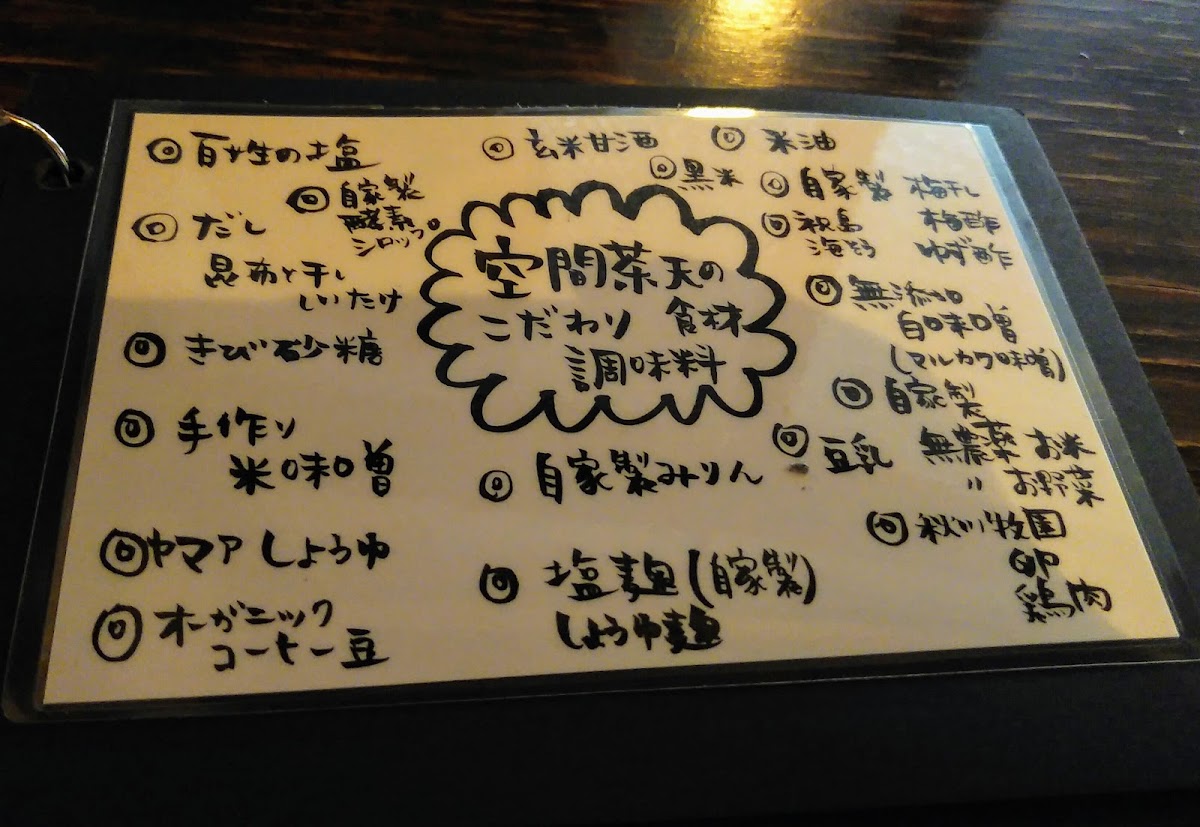 ◎ 百姓の塩
◎ 自家製
酵素
シロップ
◎ だし
昆布と干し
しいたけ
◎ きび砂糖
◎ 手作り
米味噌
◎ ヤマア しょうゆ
◎ オーガニック
コーヒー豆
◎ 玄米甘酒
◎ 黒米
空間茶天の
こだわり 食材
調味料
◎ 自家製みりん
◎ 塩麹(自家製)
しょうゆ麹
◎ 米油
◎ 自家製 梅干し
梅酢
ゆず酢
◎ 祝島
◎ 無添加
白味噌
(マルカワ味噌)
◎ 自家製
無農薬 お米
〃 お野菜
◎ 豆乳
◎ 秋川牧園
卵
鶏肉